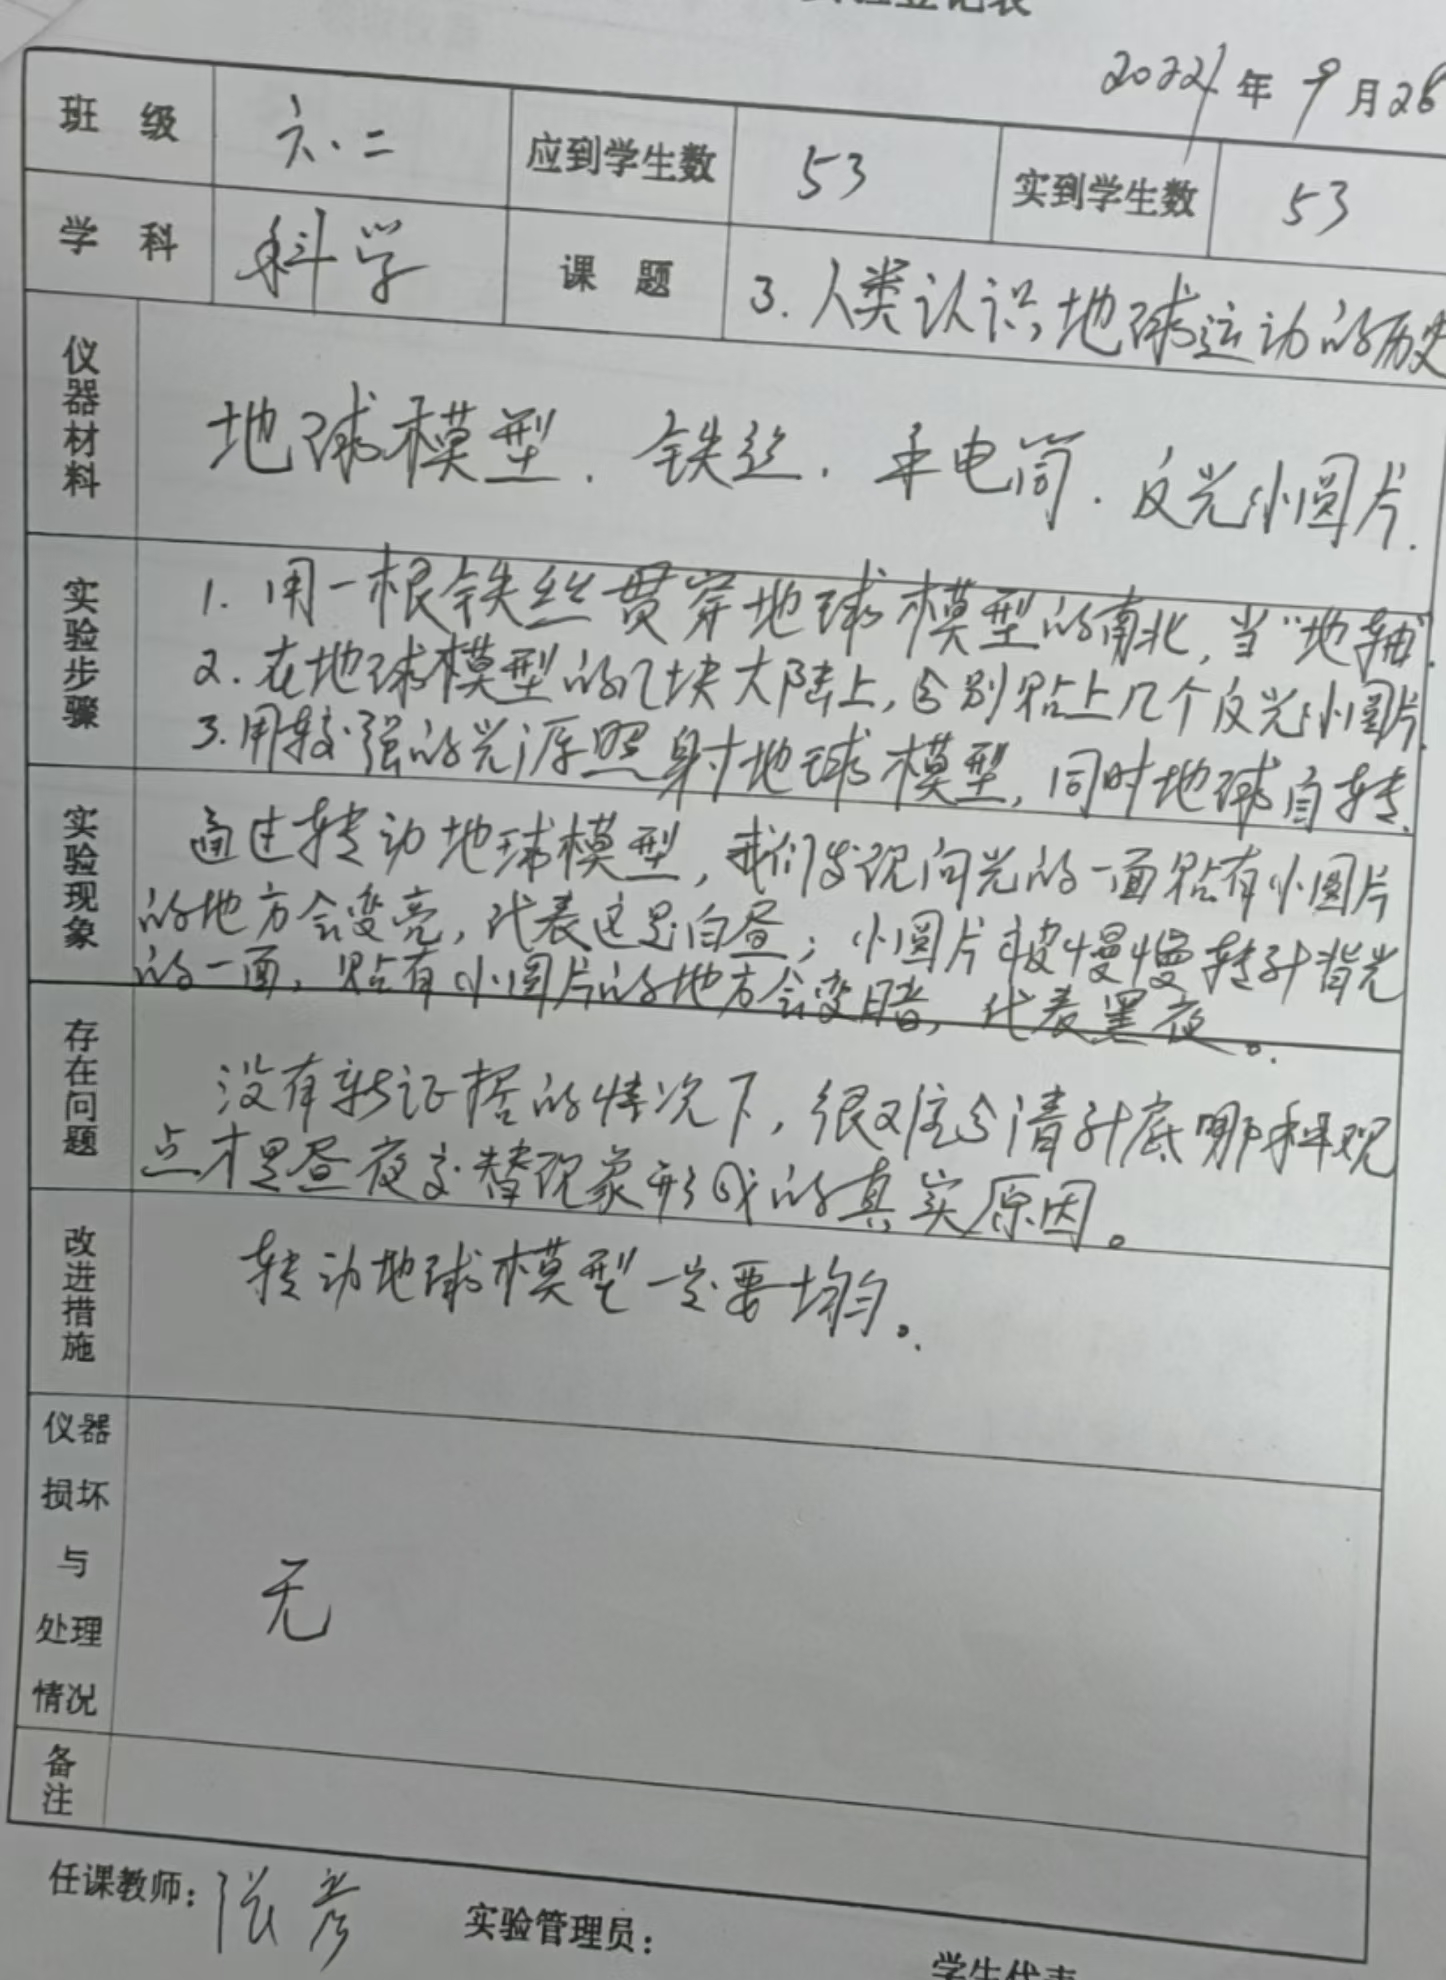 登记表
年 9月28
班级 六.二 应到学生数 53 实到学生数 53
学科 科学 课题 3.人类认识地球运动的历史
仪器材料 地球模型.铁丝.手电筒.反光小圆片.
实验步骤 1.用一根铁丝贯穿地球模型的南北,当“地轴”.
2.在地球模型的几块大陆上,分别贴上几个反光小圆片.
3.用较强的光源照射地球模型,同时地球自转.
实验现象 通过转动地球模型,我们发现向光的一面贴有小圆片
的地方会变亮,代表这是白昼;小圆片被慢慢转到背光
的一面,贴有小圆片的地方会变暗,代表黑夜。
存在问题 没有新证据的情况下,很难分清到底哪种观
点才是昼夜交替现象形成的真实原因。
改进措施 转动地球模型一定要均匀。
仪器
损坏
与
处理
情况
无
备注
任课教师:张彦 实验管理员: 学生代表